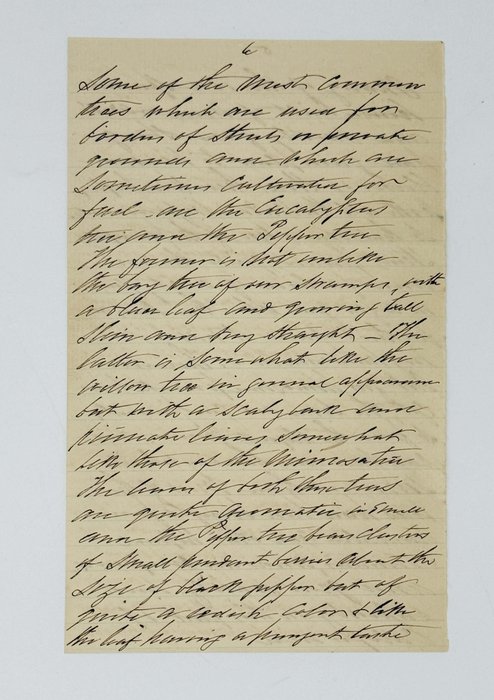 6
Some of the most common
trees which are used for
borders of streets or private
grounds and which are
sometimes cultivated for
fuel - are the Eucalyptus
tree and the Pepper tree
The former is not unlike
the bay tree of our swamps, with
a blue leaf and growing tall
slim and very straight - The
latter is somewhat like the
willow tree in general appearance
but with a scaly bark and
pinnate leaves somewhat
like those of the Mimosa tree
The leaves of both these trees
are quite aromatic in smell
and the Pepper tree bears clusters
of small pendant berries about the
size of black pepper but of
quite a redish color & like
the leaf having a pungent taste